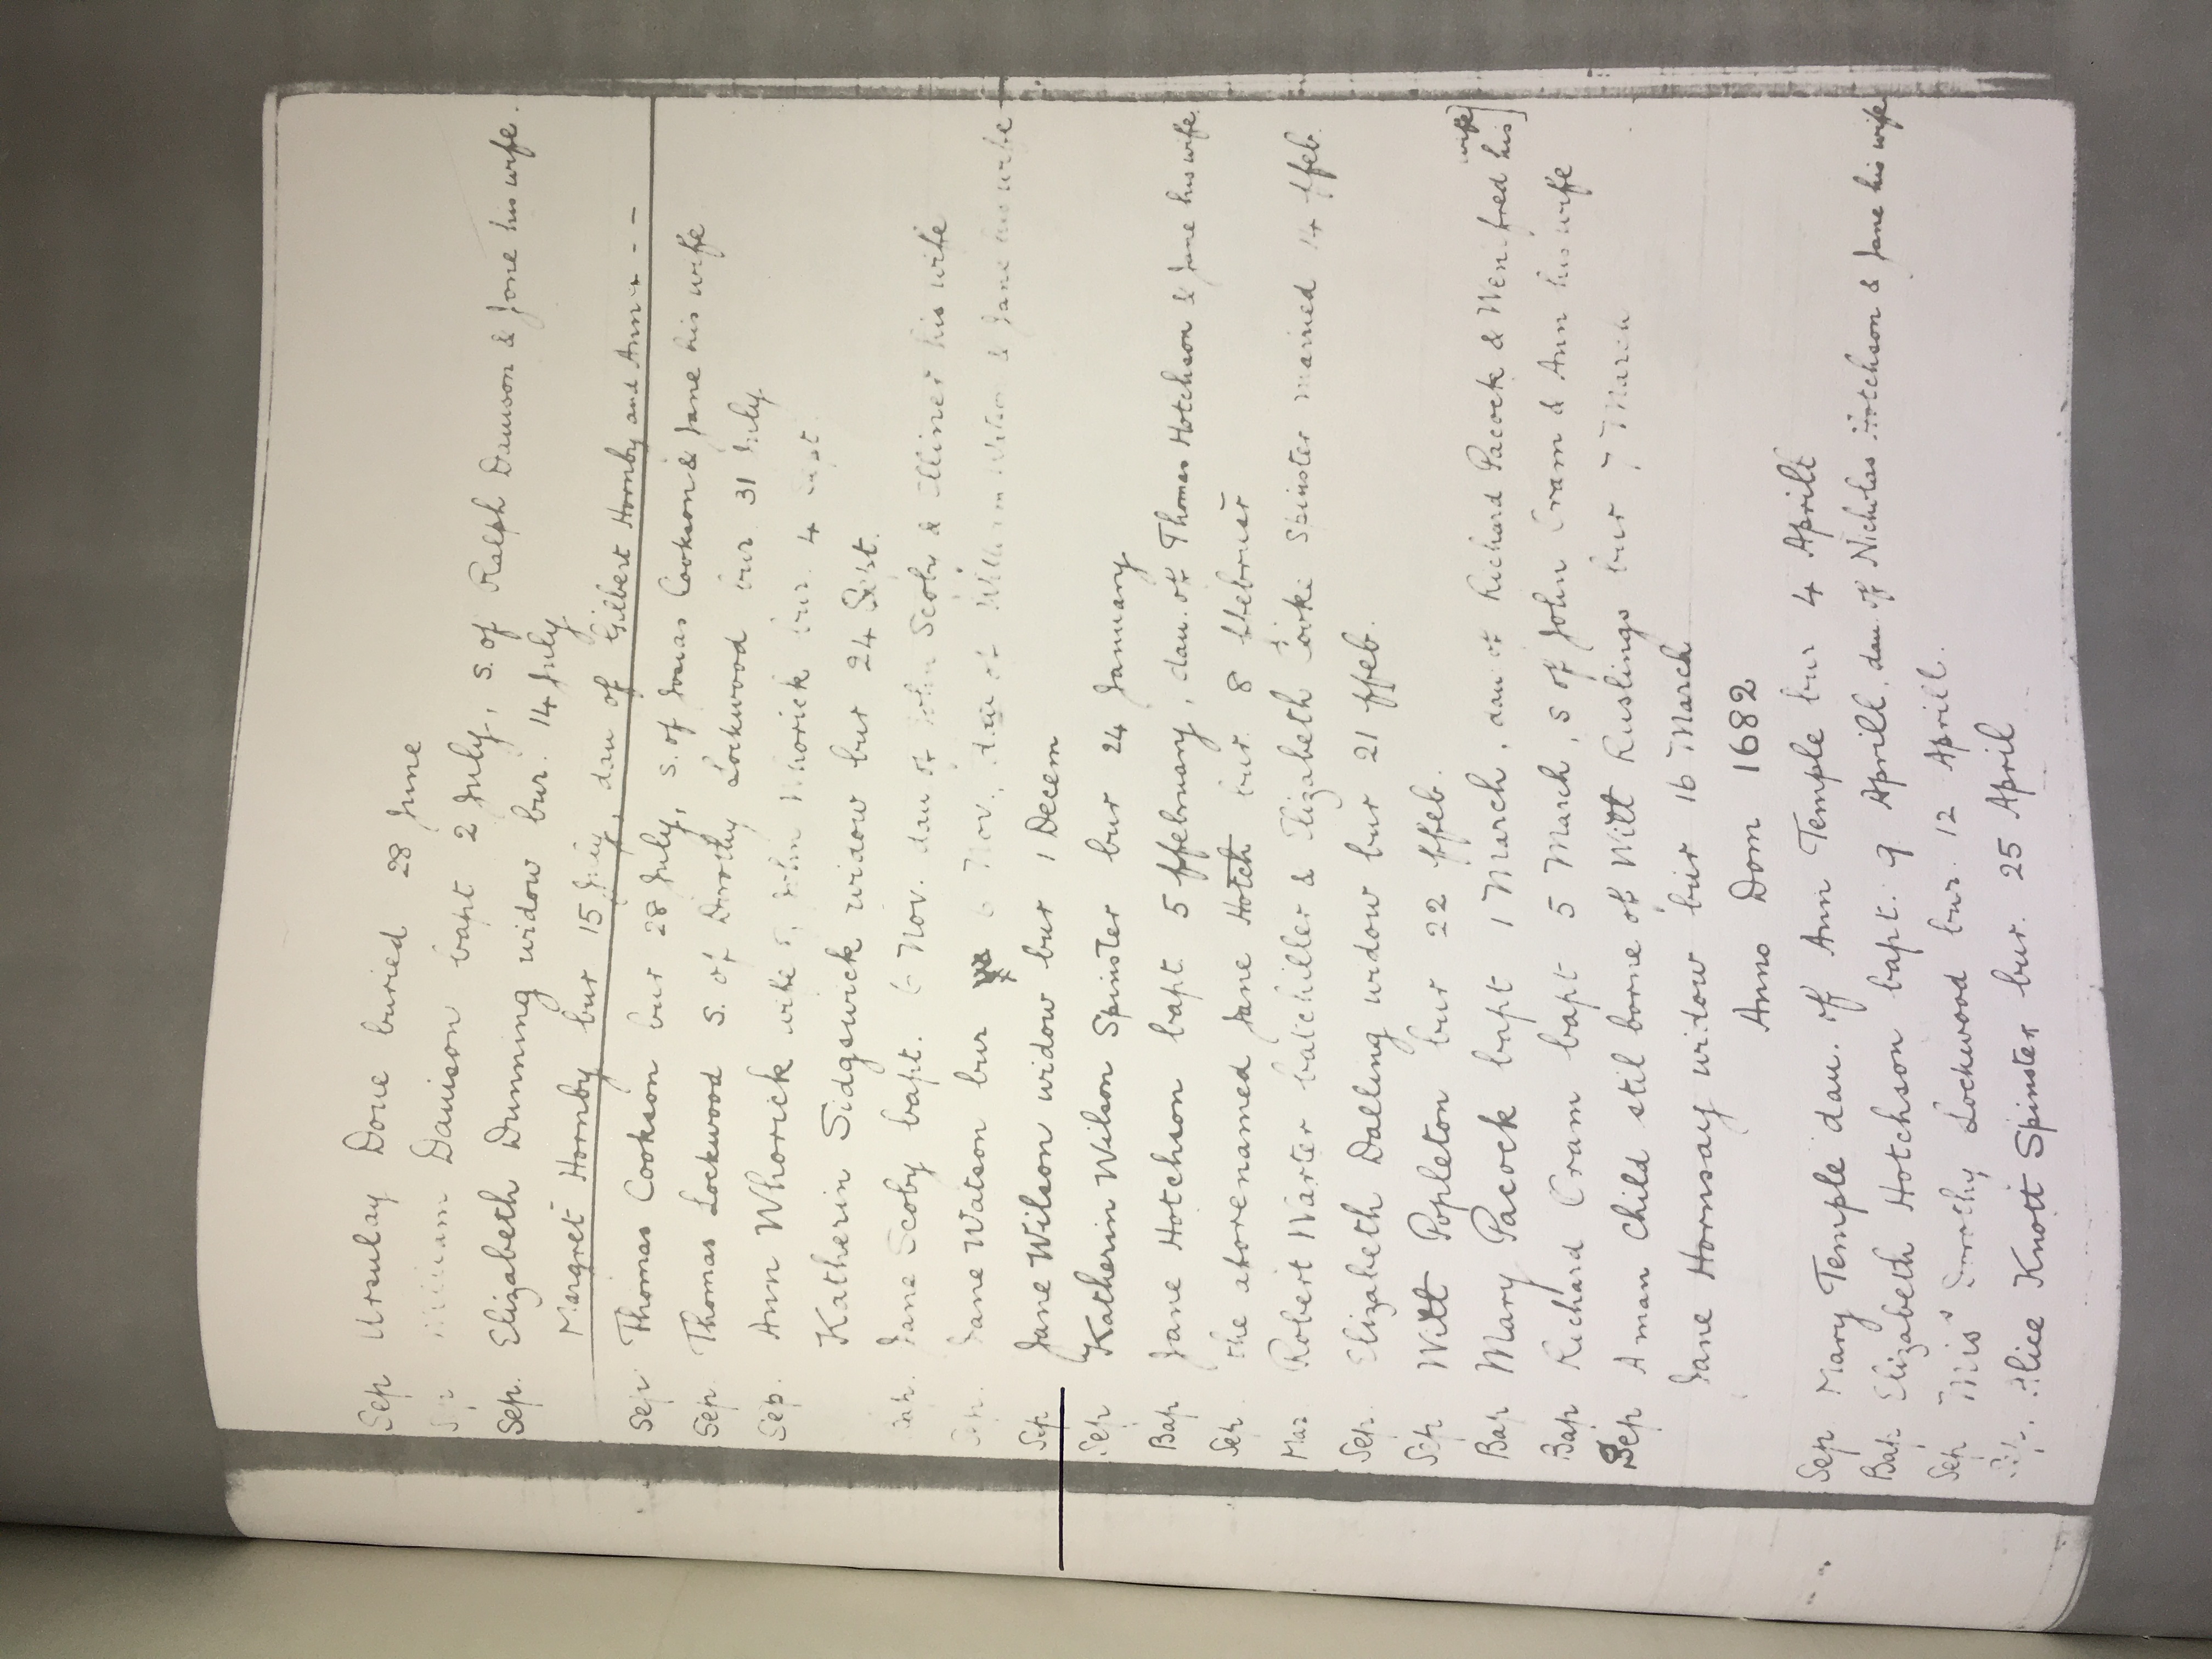 Sep Ursulay Done buried 28 June
William Dauison bapt 2 July, s. of Ralph Dauison & Jone his wife.
Sep. Elizabeth Dunning widow bur. 14 July
Margret Hornby bur 15 July, dau of Gilbert Hornby and Ann - - -
Sep Thomas Cookson bur 28 July, s. of Jonas Cookson & Jane his wife
Sep. Thomas Lockwood s. of Dorothy Lockwood bur 31 July.
Sep. Ann Whorick wife of John Whorick bur. 4 Sept.
Katherin Sidgswick widow bur 24 Sept.
Bap. Jane Scoby bapt. 6 Nov. dau of John Scoby & Elliner his wife
Sep. Jane Watson bur 6 Nov., dau of William & Jane his wife
Sep Jane Wilson widow bur 1 Decem
Sep Katherin Wilson Spinster bur 24 January
Bap Jane Hotchson bapt. 5 ffebruary, dau. of Thomas Hotchson & Jane his wife
Sep. the aforenamed Jane Hotch bur. 8 ffebruer
Mar Robert Warter batchiller & Elizabeth Spinster married 14 ffeb.
Sep. Elizabeth Dalling widow bur 21 ffeb.
Sep Witt Popleton bur 22 ffeb.
Bap Mary Pacock bapt 1 March, dau of Richard Pacock & Wenifred his] wife]
Bap Richard Cram bapt 5 March, s of John Cram & Ann his wife
Sep A man child stil borne of Witt Ruslings bur 7 March
Jane Hornsay widow bur 16 March
Anno Dom 1682
Sep Mary Temple dau. of Ann Temple bur 4 Aprill
Bap. Elizabeth Hotchson bapt. 9 Aprill, dau. of Nicholas Hotchson & Jane his wife
Sep Mis Dorothy Lockwood bur. 12 Aprill.
Sep. Alice Knott Spinster bur. 25 April